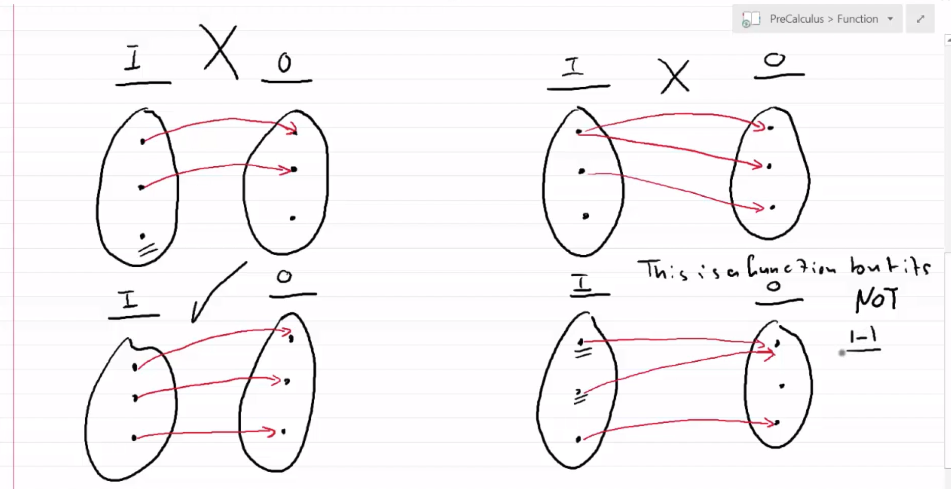 PreCalculus > Function
I X O
I X O
I ✓ O
This is a function but its
I O NOT
1-1